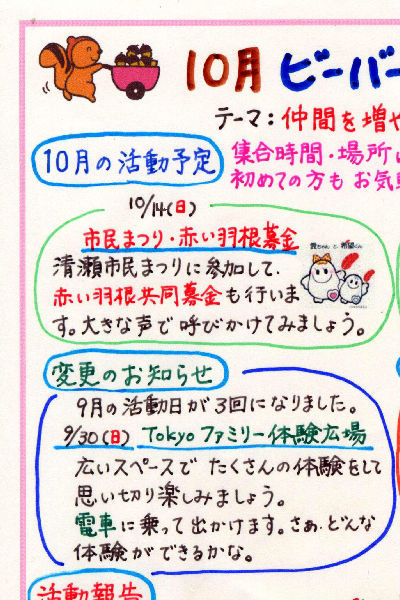 10月 ビーバー
テーマ：仲間を増や
10月の活動予定
集合時間・場所
初めての方も お気
10/14(日)
市民まつり・赤い羽根募金
愛ちゃん と 希望くん
清瀬市民まつりに参加して、
赤い羽根共同募金も行いま
す。大きな声で呼びかけてみましょう。
変更のお知らせ
9月の活動日が3回になりました。
9/30(日) Tokyo ファミリー体験広場
広いスペースで たくさんの体験をして
思い切り楽しみましょう。
電車に乗って出かけます。さぁ、どんな
体験ができるかな。
活動報告